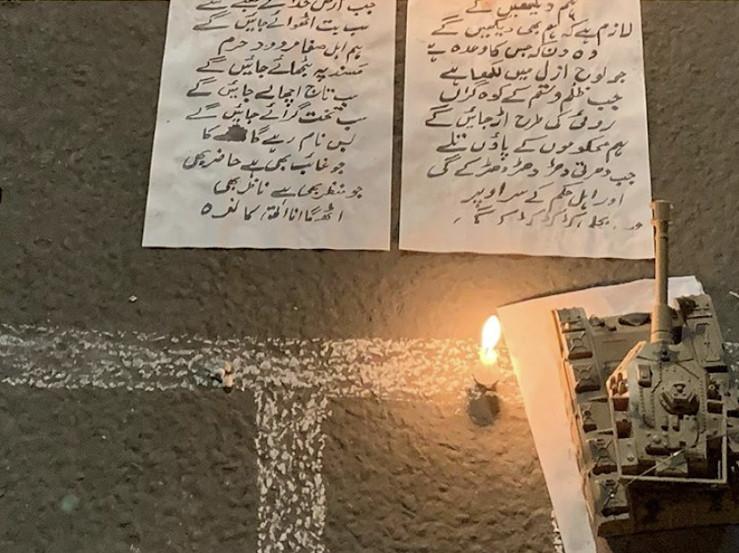 ہم دیکھیں گے
لازم ہے کہ ہم بھی دیکھیں گے
وہ دن کہ جس کا وعدہ ہے
جو لوح ازل میں لکھا ہے
جب ظلم و ستم کے کوہ گراں
روئی کی طرح اڑ جائیں گے
ہم محکوموں کے پاؤں تلے
جب دھرتی دھڑ دھڑ دھڑکے گی
اور اہل حکم کے سر اوپر
جب ارض خدا کے کعبے سے
سب بت اٹھوائے جائیں گے
ہم اہل صفا مردود حرم
مسند پہ بٹھائے جائیں گے
سب تاج اچھالے جائیں گے
سب تخت گرائے جائیں گے
بس نام رہے گا کا
جو غائب بھی ہے حاضر بھی
جو منظر بھی ہے ناظر بھی
اٹھے گا انا الحق کا نعرہ